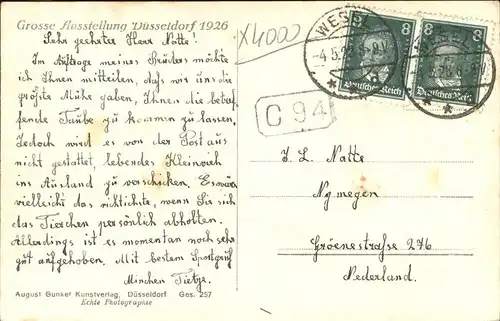 Grosse Ausstellung Düsseldorf 1926
Sehr geehrter Herr Notte!
Im Auftrage meines Bruders möchte
ich Ihnen mitteilen, daß wir uns die
größte Mühe gaben, Ihnen die betref-
fende Taube zu kommen zu lassen,
Jedoch wird es von der Post aus
nicht gestattet, lebendes Kleinvieh
ins Ausland zu verschicken. Es wäre
vielleicht das richtichte, wenn Sie sich
das Tierchen persönlich abholten.
Allerdings ist es momentan noch sehr
gut aufgehoben. Mit bestem Sportgruß
Minchen Tietze
August Gunkel Kunstverlag, Düsseldorf Ges. 257
Echte Photographie
X4000
WESEL
-4.5.
8
8
Deutsches Reich
Deutsches Reich
C 94
J. L. Natte
Nymegen
Gröenestraße 276
Nederland.